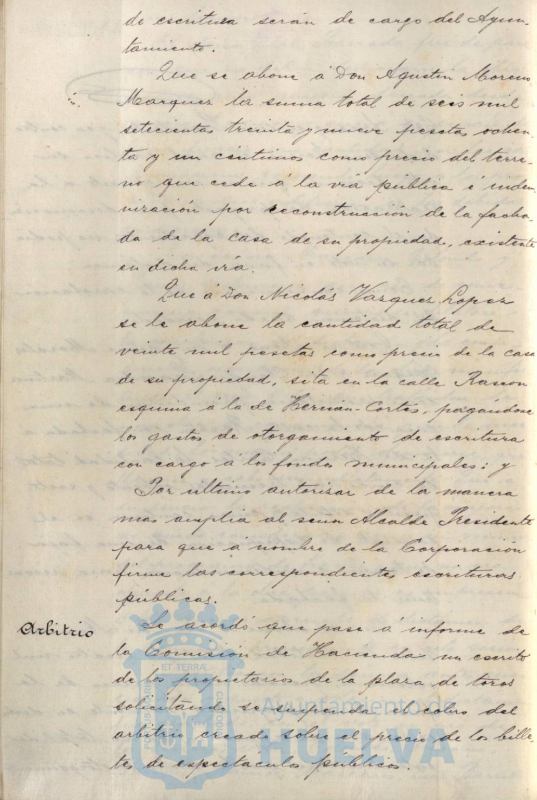 de escritura serán de cargo del Ayun-
tamiento.
Que se abone á Don Agustin Moreno
Marquez la suma total de seis mil
setecientas treinta y nueve pesetas ochen-
ta y un centimos como precio del terre-
no que cede á la via pública é indem-
nización por reconstrucción de la facha-
da de la casa de su propiedad, existente
en dicha via.
Que á Don Nicolás Vazquez Lopez
se le abone la cantidad total de
veinte mil pesetas como precio de la casa
de su propiedad, sita en la calle Rascon
esquina á la de Hernán-Cortés, pagándose
los gastos de otorgamiento de escritura
con cargo á los fondos municipales: y
Por ultimo autorizar de la manera
mas amplia al señor Alcalde Presidente
para que á nombre de la Corporación
firme las correspondientes escrituras
públicas.
Arbitrio
Se acordó que pase á informe de
la Comisión de Hacienda un escrito
de los propietarios de la plaza de toros
solicitando se suspenda el cobro del
arbitrio creado sobre el precio de los bille-
tes de espectaculos públicos.
Ayuntamiento de
HUELVA